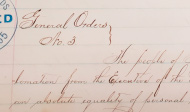 General Orders
No. 3
The people of
formation from the Executive of the
and absolute equality of personal